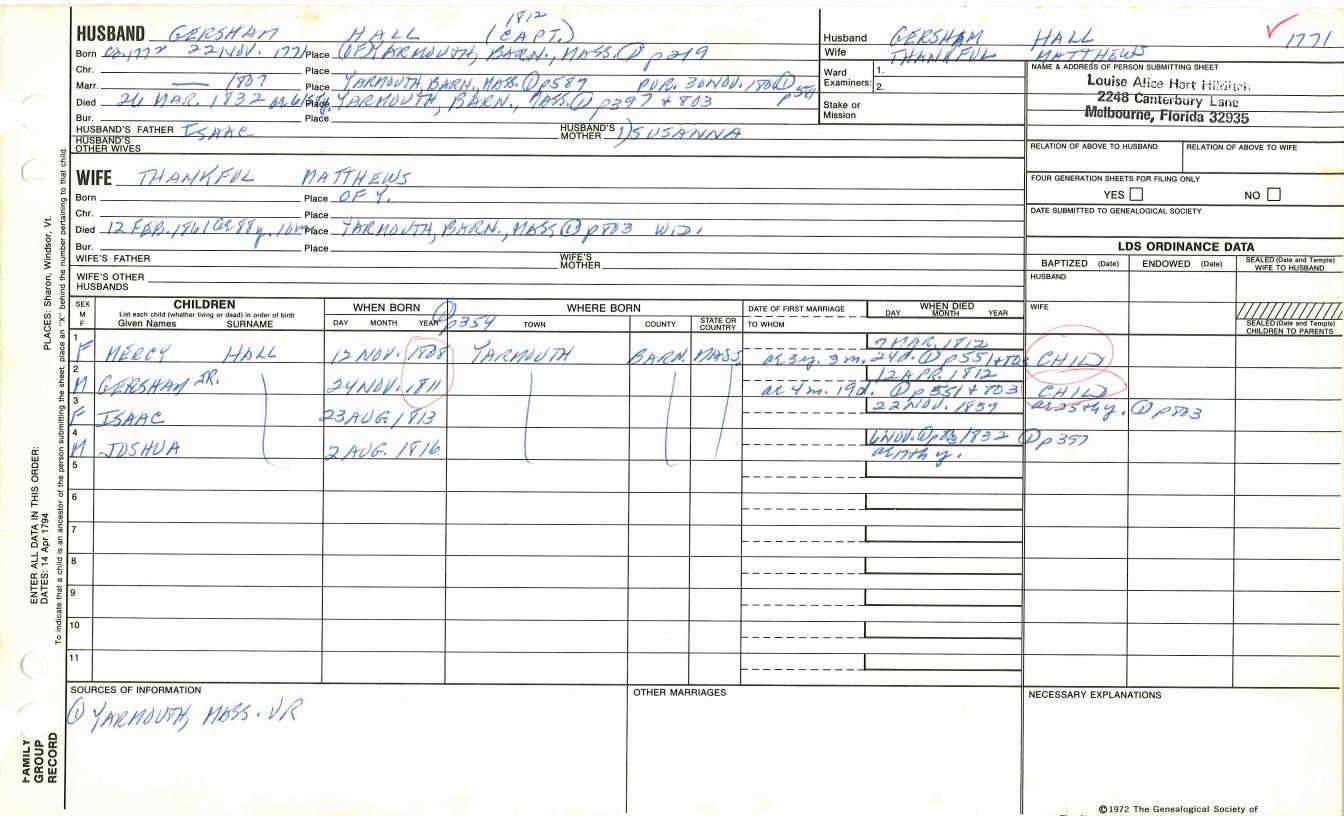 1812
HUSBAND GERSHAM HALL (CAPT.)
Born 22 NOV. 1771 Place OF YARMOUTH, BARN., MASS. ① p219
Chr. Place
Marr. — 1807 Place YARMOUTH, BARN., MASS. ① p587 PUR. 30 NOV. ①
Died 26 MAR. 1832 Place YARMOUTH, BARN., MASS. ① p397 + 803
Bur. Place
HUSBAND'S FATHER ISAAC HUSBAND'S MOTHER 1) SUSANNA
HUSBAND'S OTHER WIVES
WIFE THANKFUL MATTHEWS
Born Place OF Y.
Chr. Place
Died 12 FEB. 1861 Place YARMOUTH, BARN., MASS ① p803 WID.
Bur. Place
WIFE'S FATHER WIFE'S MOTHER
WIFE'S OTHER HUSBANDS
Husband GERSHAM HALL 1771
Wife THANKFUL MATTHEWS
Ward Examiners: 1.
2.
Stake or Mission
NAME & ADDRESS OF PERSON SUBMITTING SHEET
Louise Alice Hart
2248 Canterbury Lane
Melbourne, Florida 32935
RELATION OF ABOVE TO HUSBAND RELATION OF ABOVE TO WIFE
FOUR GENERATION SHEETS FOR FILING ONLY
YES NO
DATE SUBMITTED TO GENEALOGICAL SOCIETY
LDS ORDINANCE DATA
BAPTIZED (Date) ENDOWED (Date) SEALED (Date and Temple) WIFE TO HUSBAND
HUSBAND
WIFE
SEALED (Date and Temple) CHILDREN TO PARENTS
SEX M F
CHILDREN
List each child (whether living or dead) in order of birth
Given Names SURNAME
WHEN BORN
DAY MONTH YEAR
① p354
WHERE BORN
TOWN COUNTY STATE OR COUNTRY
DATE OF FIRST MARRIAGE
TO WHOM
WHEN DIED
DAY MONTH YEAR
1 7 MAR. 1812
F MERCY HALL 12 NOV. 1808 YARMOUTH BARN. MASS. ae 3y. 3m. 24d. ① p551 + 803 CHILD
2 12 APR. 1812
M GERSHAM JR. 24 NOV. 1811 ae 4m. 19d. ① p551 + 803 CHILD
3 22 NOV. 1837 ae 25th y. ① p803
F ISAAC 23 AUG 1813
4 6 NOV. ① 1832 ① p397
M JOSHUA 2 AUG. 1816 ae 17th y.
5
6
7
8
9
10
11
SOURCES OF INFORMATION
① YARMOUTH, MASS. VR
OTHER MARRIAGES
NECESSARY EXPLANATIONS
©1972 The Genealogical Society of
ENTER ALL DATA IN THIS ORDER:
DATES: 14 Apr 1794
PLACES: Sharon, Windsor, Vt.
To indicate that a child is an ancestor of the person submitting the sheet, place an "X" behind the number pertaining to that child.
FAMILY GROUP RECORD